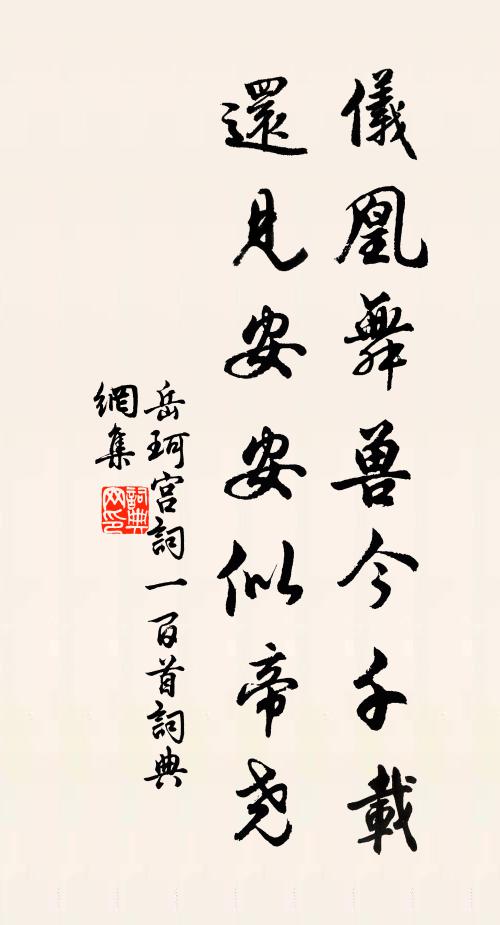 儀凰舞兽今千載
還見安安似帝尧
岳珂宫詞一百首詞典
網集
詞典
网印